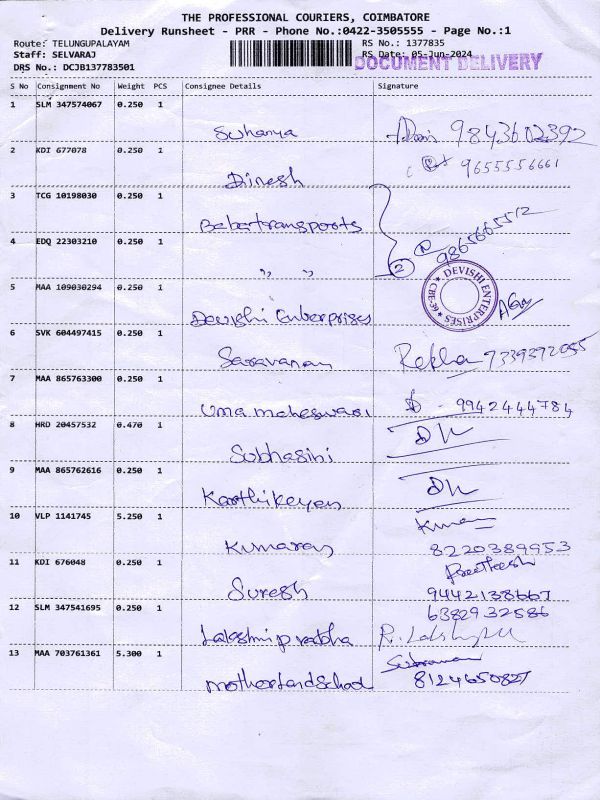 THE PROFESSIONAL COURIERS, COIMBATORE
Delivery Runsheet - PRR - Phone No.:0422-3505555 - Page No.:1
Route: TELUNGUPALAYAM RS No.: 1377835
Staff: SELVARAJ RS Date: 05-Jun-2024
DOCUMENT DELIVERY
DRS No.: DCJB137783501
S No Consignment No Weight PCS Consignee Details Signature
1 SLM 347574067 0.250 1
Suhanya 9843602392
2 KDI 677078 0.250 1
9655556661
Dinesh
3 TCG 10198030 0.250 1
Babartransports 9865665512
4 EDQ 22303210 0.250 1
" " 2
DEVISHI ENTERPRISES CBE-26
5 MAA 109030294 0.250 1
Devishi Enterprises
6 SVK 604497415 0.250 1
Saravanan Rekha 7339372055
7 MAA 865763300 0.250 1
Uma maheswari 9942444784
8 HRD 20457532 0.470 1
Subhasini
9 MAA 865762616 0.250 1
Karthikeyan
10 VLP 1141745 5.250 1
Kumaran 8220389953
11 KDI 676048 0.250 1
Preetheesh
Suresh 9442138667
12 SLM 347541695 0.250 1
6382932586
Lakshmi prabha
13 MAA 703761361 5.300 1
motherland School 8124650827